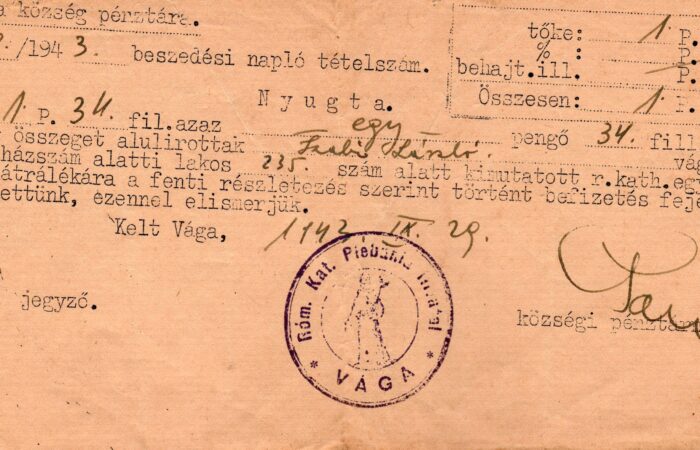 a község pénztára.
/1943. beszedési napló tételszám.
tőke: 1 P.
% : P.
behajt.ill. — P.
Összesen: 1 P.
Nyugta.
1 P. 34. fil.azaz egy pengő 34. fill
összeget alulirottak László. vág
házszám alatti lakos 235. szám alatt kimutatott r.kath.eg
átrálékára a fenti részletezés szerint történt befizetés feje
ettünk, ezennel elismerjük.
Kelt Vága, 1943 IX. 29.
Róm. Kat. Plebánia
* VÁGA *
jegyző.
községi pénztár